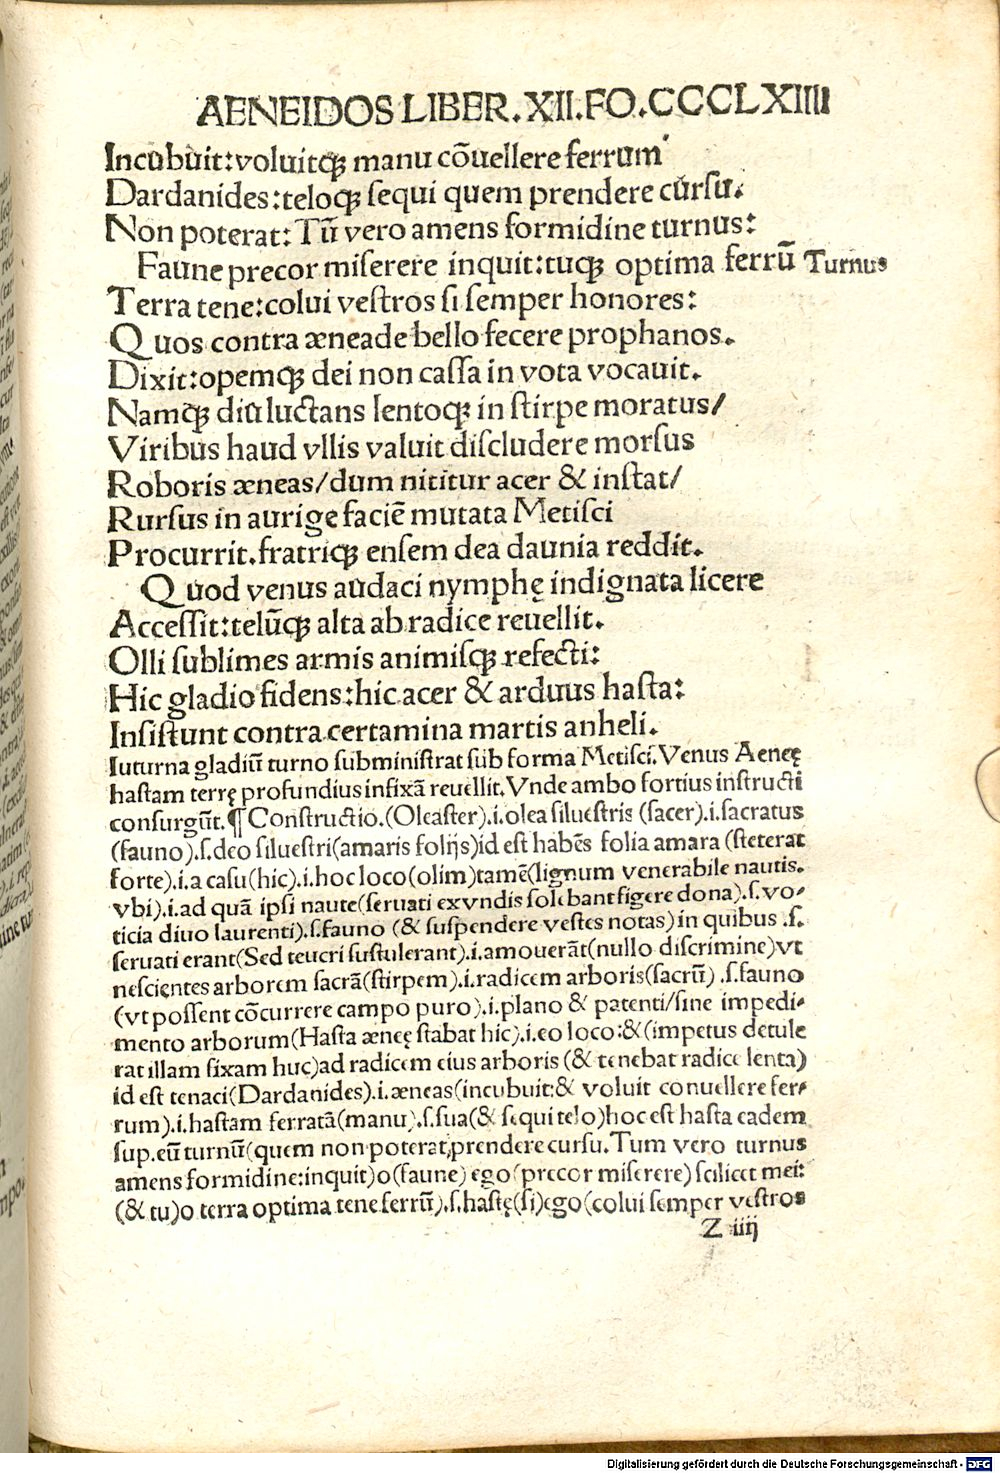 AENEIDOS LIBER. XII. FO. CCCLXIIII
Incubuit: voluitqꝫ manu cōuellere ferrum
Dardanides: teloqꝫ sequi quem prendere cursu.
Non poterat: Tū vero amens formidine turnus:
Faune precor miserere inquit: tuqꝫ optima ferrū Turnus
Terra tene: colui vestros si semper honores:
Quos contra æneade bello fecere prophanos.
Dixit: opemqꝫ dei non cassa in vota vocauit.
Namqꝫ diu luctans lentoqꝫ in stirpe moratus/
Viribus haud vllis valuit discludere morsus
Roboris æneas/ dum nititur acer & instat/
Rursus in aurige faciē mutata Metisci
Procurrit. fratriqꝫ ensem dea daunia reddit.
Quod venus audaci nymphę indignata licere
Accessit: telūqꝫ alta ab radice reuellit.
Olli sublimes armis animisqꝫ refecti:
Hic gladio fidens: hic acer & arduus hasta:
Insistunt contra certamina martis anheli.
Iuturna gladiū turno subministrat sub forma Metisci. Venus Aenęę
hastam terrę profundius infixā reuellit. Vnde ambo fortius instructi
consurgūt. ¶ Constructio. (Oleaster). i. olea siluestris (sacer). i. sacratus
(fauno). s. deo siluestri (amaris folijs) id est habēs folia amara (steterat
forte). i. a casu (hic). i. hoc loco (olim) tamē (lignum venerabile nautis.
vbi). i. ad quā ipsi naute (seruati ex vndis solebant figere dona). s. vo-
ticia diuo laurenti). s. fauno (& suspendere vestes notas) in quibus .s.
seruati erant (Sed teucri sustulerant). i. amouerāt (nullo discrimine) vt
nescientes arborem sacrā (stirpem). i. radicem arboris (sacrū) .s. fauno
(vt possent cōcurrere campo puro). i. plano & patenti/ sine impedi-
mento arborum (Hasta ænęę stabat hic). i. eo loco: & (impetus detule
rat illam fixam huc) ad radicem eius arboris (& tenebat radice lenta)
id est tenaci (Dardanides). i. æneas (incubuit: & voluit conuellere fer-
rum). i. hastam ferratā (manu). s. sua (& sequi telo) hoc est hasta eadem
sup. eū turnū (quem non poterat prendere cursu. Tum vero turnus
amens formidine: inquit) o (faune) ego (precor miserere) scilicet mei:
(& tu) o terra optima tene ferrū). s. hastę (si) ego (colui semper vestros
Z iiij
Digitalisierung gefördert durch die Deutsche Forschungsgemeinschaft - DFG